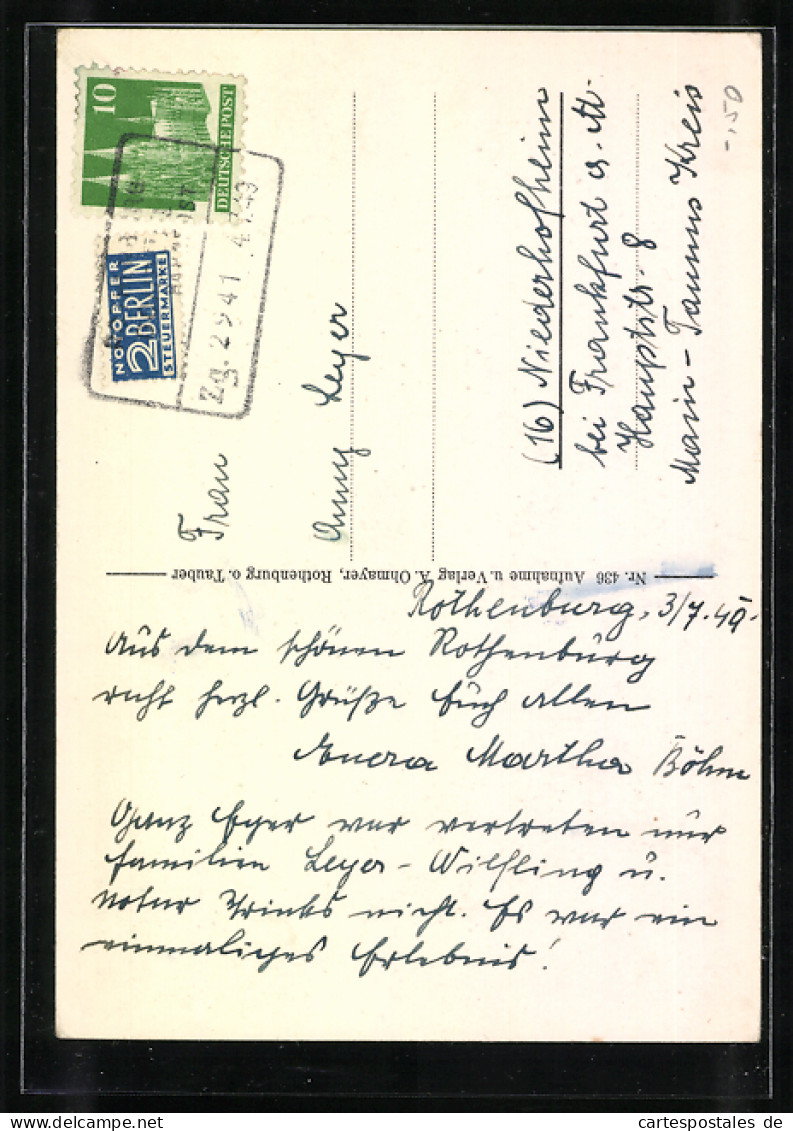 10
DEUTSCHE POST
NOTOPFER
2 BERLIN
STEUERMARKE
BAHNPOST
Zg. 2941 4.7.49
-.50
Frau
Anny Leyer
(16) Niederhofheim
bei Frankfurt a. M.
Hauptstr. 8
Main-Taunus Kreis
Nr. 436 Aufnahme u. Verlag A. Ohmayer, Rothenburg o. Tauber
Rothenburg, 3/7.49.
Aus dem schönen Rothenburg
recht herzl. Grüße Euch allen
Euera Martha Böhm
Ganz Eger war vertreten nur
Familien Leyer-Wilfling u.
Notar nicht. Es war ein
einmaliges Erlebnis!
cartespostales de